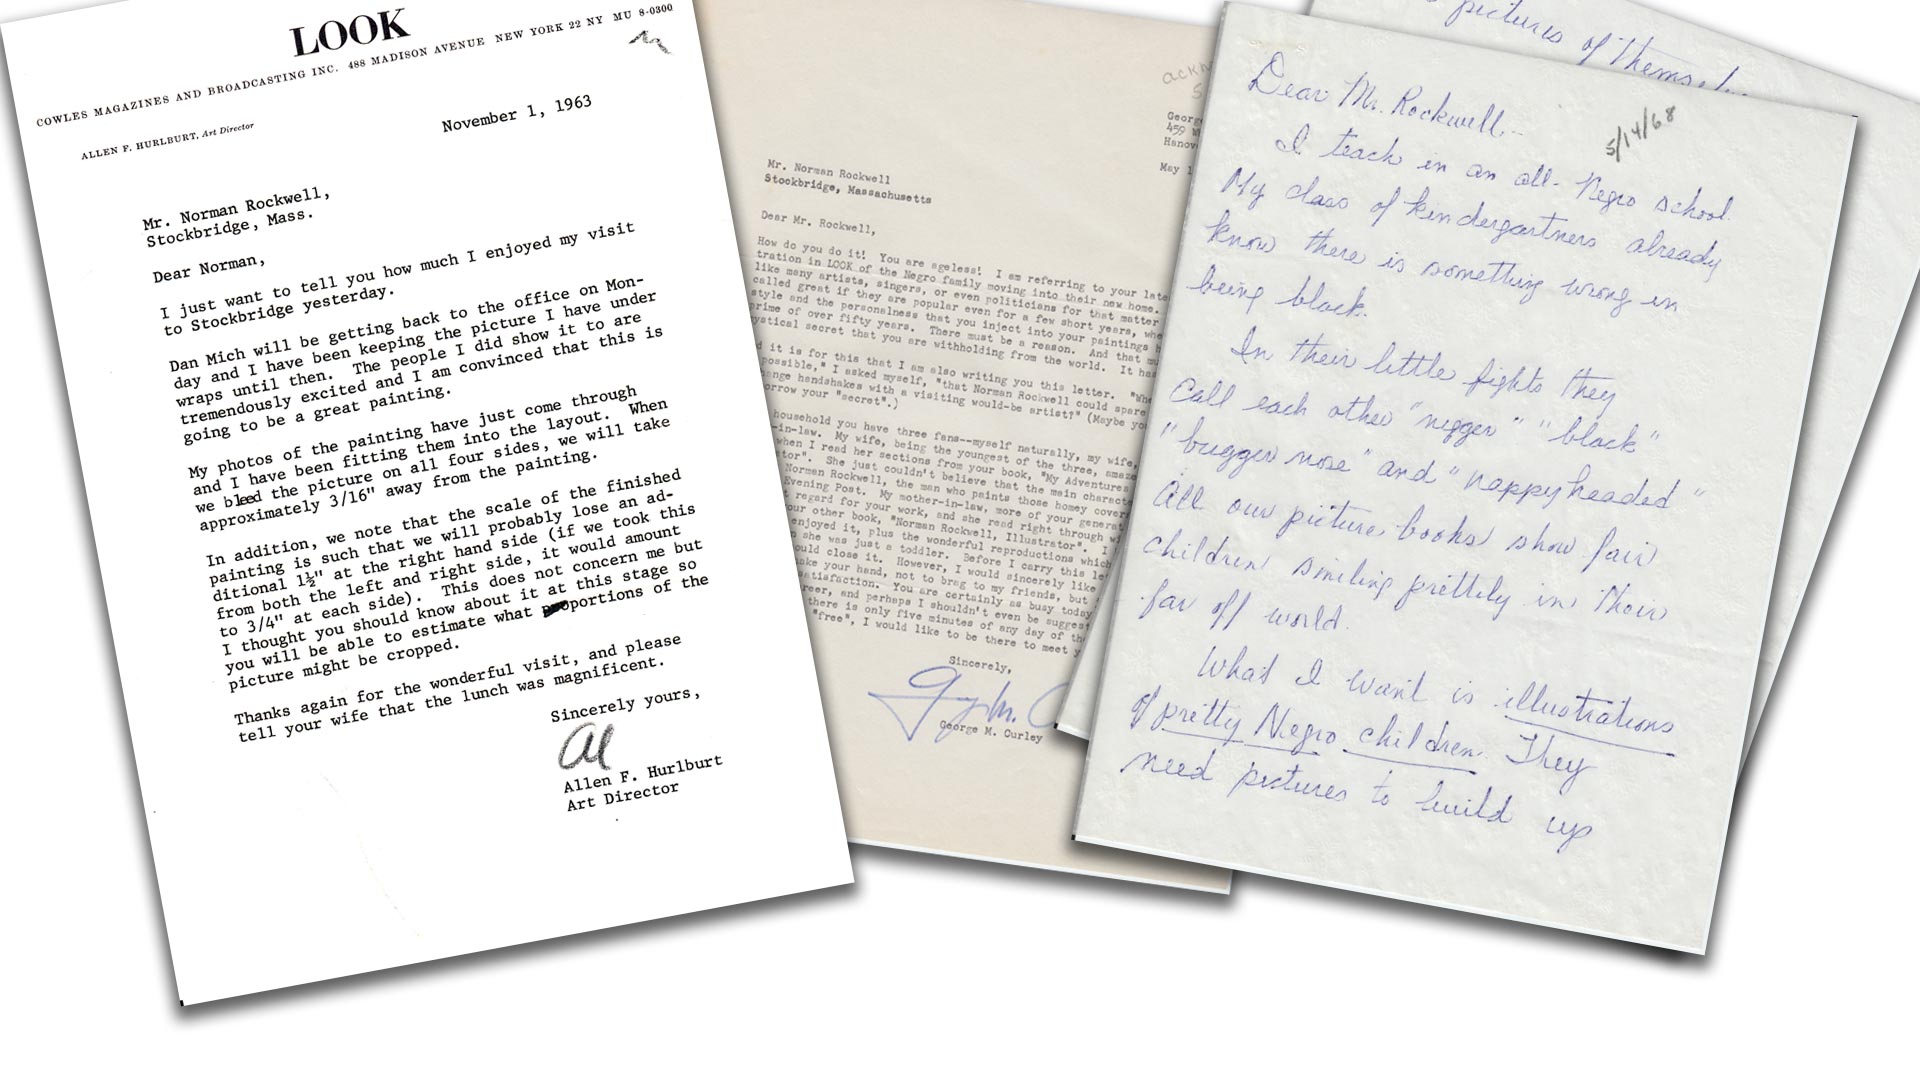 LOOK
COWLES MAGAZINES AND BROADCASTING INC. 488 MADISON AVENUE NEW YORK 22 NY MU 8-0300
ALLEN F. HURLBURT, Art Director
November 1, 1963
Mr. Norman Rockwell,
Stockbridge, Mass.
Dear Norman,
I just want to tell you how much I enjoyed my visit
to Stockbridge yesterday.
Dan Mich will be getting back to the office on Mon-
day and I have been keeping the picture I have under
wraps until then. The people I did show it to are
tremendously excited and I am convinced that this is
going to be a great painting.
My photos of the painting have just come through
and I have been fitting them into the layout. When
we bleed the picture on all four sides, we will take
approximately 3/16" away from the painting.
In addition, we note that the scale of the finished
painting is such that we will probably lose an ad-
ditional 1½" at the right hand side (if we took this
from both the left and right side, it would amount
to 3/4" at each side). This does not concern me but
I thought you should know about it at this stage so
you will be able to estimate what proportions of the
picture might be cropped.
Thanks again for the wonderful visit, and please
tell your wife that the lunch was magnificent.
Sincerely yours,
Al
Allen F. Hurlburt
Art Director
ackn
Georg
459 W
Hanov
May 1
Mr. Norman Rockwell
Stockbridge, Massachusetts
Dear Mr. Rockwell,
How do you do it! You are ageless! I am referring to your late
tration in LOOK of the Negro family moving into their new home.
like many artists, singers, or even politicians for that matter
called great if they are popular even for a few short years, whe
style and the personalness that you inject into your paintings h
prime of over fifty years. There must be a reason. And that mu
ystical secret that you are withholding from the world. It has
d it is for this that I am also writing you this letter. "Whe
possible," I asked myself, "that Norman Rockwell could spare
hange handshakes with a visiting would-be artist?" (Maybe yo
orrow your "secret".)
household you have three fans--myself naturally, my wife,
-in-law. My wife, being the youngest of the three, amaze
when I read her sections from your book, "My Adventures
tor". She just couldn't believe that the main charact
Norman Rockwell, the man who paints those homey cover
Evening Post. My mother-in-law, more of your generat
t regard for your work, and she read right through wi
our other book, "Norman Rockwell, Illustrator". I
enjoyed it, plus the wonderful reproductions which
n she was just a toddler. Before I carry this le
ould close it. However, I would sincerely like
ake your hand, not to brag to my friends, but
satisfaction. You are certainly as busy today
reer, and perhaps I shouldn't even be suggest
there is only five minutes of any day of th
"free", I would like to be there to meet y
Sincerely,
George M. Curley
pictures of themselv
Dear Mr. Rockwell--
5/14/68
I teach in an all-Negro school.
My class of kindergartners already
know there is something wrong in
being black.
In their little fights they
Call each other "nigger" "black"
"bugger nose" and "nappyheaded"
All our picture books show fair
children smiling prettily in their
far off world.
What I want is illustrations
of pretty Negro children. They
need pictures to build up